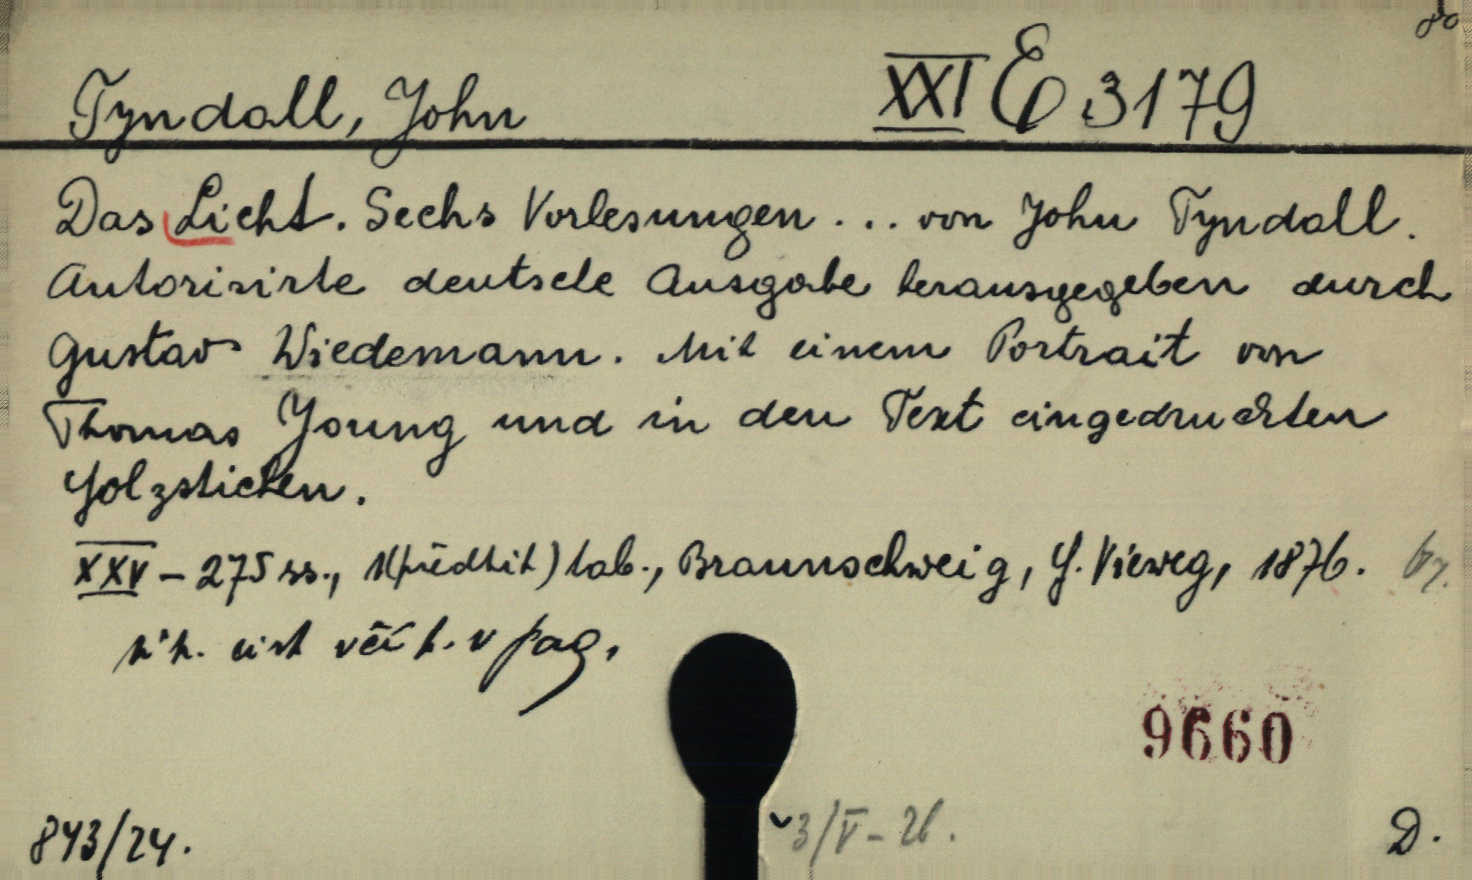 8°
Tyndall, John XXI E 3179
Das Licht. Sechs Vorlesungen ... von John Tyndall.
Autorisirte deutsche Ausgabe herausgegeben durch
Gustav Wiedemann. Mit einem Portrait von
Thomas Young und in den Text eingedruckten
Holzstichen.
XXV – 275 ss., 1(předtit) tab., Braunschweig, F. Vieweg, 1876.
víc. v pag.
9660
843/24. 3/V – 26. D.